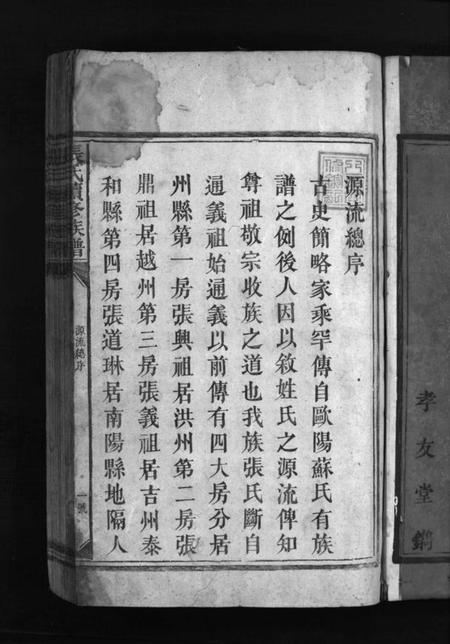 源流總序
古史簡略家乘罕傳自歐陽蘇氏有族
譜之例後人因以敘姓氏之源流俾知
尊祖敬宗收族之道也我族張氏斷自
通義祖始通義以前傳有四大房分居
州縣第一房張興祖居洪州第二房張
鼎祖居越州第三房張義祖居吉州泰
和縣第四房張道琳居南陽縣地隔人
張氏續修族譜
源流總序
一號
孝友堂鐫